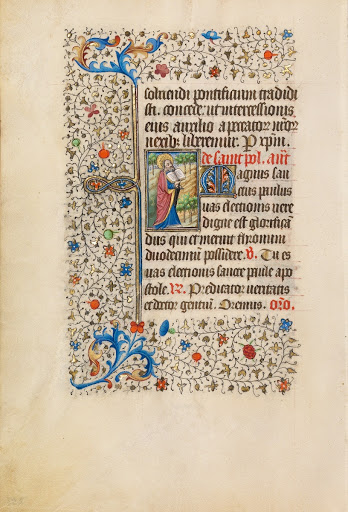 soluendi pontificium tradidi
sti. concede. ut intercessionis
eius auxilio a peccatorum nostrorum
nexibus liberemur. P xpm.
de saint pol. ant
Magnus san
ctus paulus
vas electionis vere
digne est glorifica
dus qui et meruit thronum
duodecimum possidere. V. Tu es
vas electionis sancte paule apo
stole. R. Predicator veritatis
et doctor gentium. Oremus. oro.